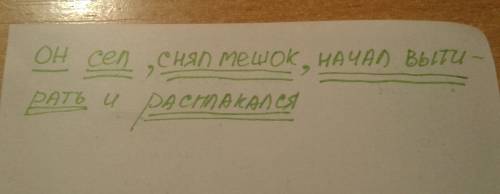 он сел, снял мешок, начал выти-
рать и расплакался